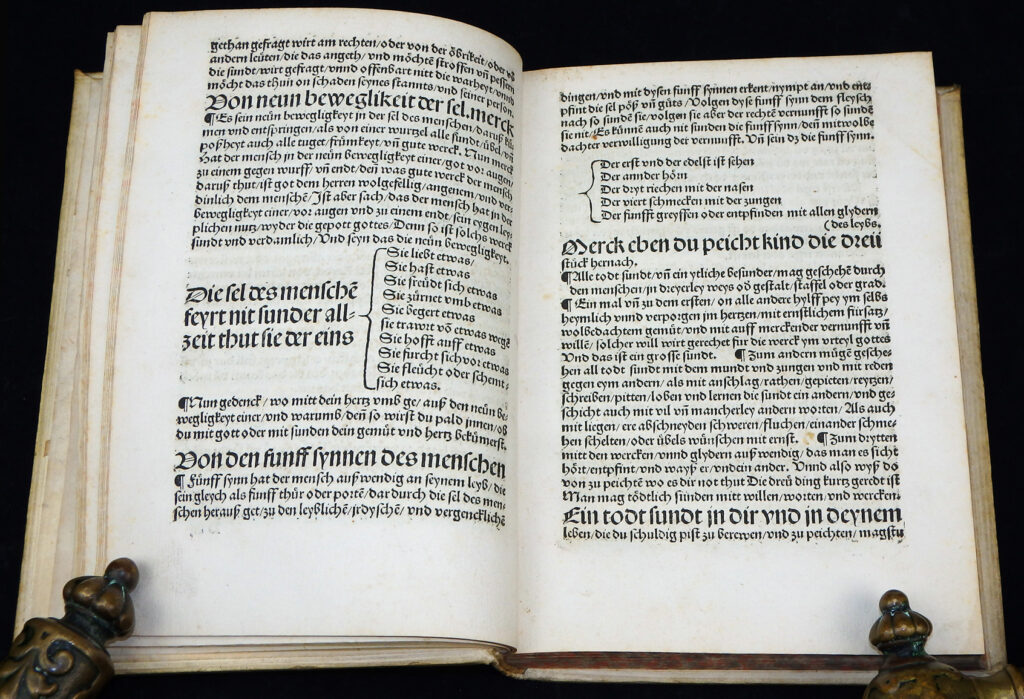 gethan gefragt wirt am rechten/oder von der ôbrikeit/oder võ
andern leüten/die das angeth/vnd môchtẽ stroffen vñ pessern
die sündt/wirt gefragt/vnnd offenbart nitt die warheyt/vnnd
môcht das thun on schaden seynes stannts/vnd seiner person.
Von neün beweglikeit der sel. merck
¶Es sein neün bewegligkeyt in der sel des menschen/darauß kü
men vnd entspringen/als von einer wurtzel alle sündt/übel/vñ
poßheyt auch alle tuget/frümkeyt/vñ gute werck. Nun merck
Hat der mensch in der neün bewegligkeyt einer/got vor augen/
zu einem gegen wurff vñ endt/den was gute werck der mensch
daruß thut/ist got dem herren wolgefellig/angenem/vnd ver-
dinlich dem menschen/Ist aber sach/das der mensch hat in der
bewegligkeyt einer/vor augen vnd zu einem endt/sein eygen ley-
plichen nutz/wyder die gepott gottes/Denn so ist solchs werck
sündt vnd verdamlich/Vnd seyn das die neün bewegligkeyt.
Die sel des menschẽ
feyrt nit sunder all-
zeit thut sie der eins
Sie liebt etwas/
Sie hast etwas
Sie freüdt sich etwas
Sie zürnet vmb etwas
Sie begert etwas
sie trawit võ etwas wegẽ
Sie hofft auff etwas
Sie furcht sich vor etwas
Sie fleücht oder schemt
sich etwas.
¶Nun gedenck/wo mitt dein hertz vmb ge/auß den neün be-
wegligkeyt einer/vnd warumb/deñ so wirst du pald innen/ob
du mit gott oder mit sunden dein gemüt vnd hertz bekümerst.
Von den funff synnen des menschen
¶Fünff synn hat der mensch außwendig an seynem leyb/die
sein gleych als funff thür oder portẽ/dar durch die sel des men-
schen herauß get/zu den leyblichẽ/jrdyschẽ/vnd vergencklichẽ
dingen/vnd mit dysen funff synnen erkent/nympt an/vnd ent-
pfint die sel pôß vñ güts/Volgen dyse funff synn dem fleysch
nach so sunde sie/volgen sie aber der rechtẽ vernunfft so sundẽ
sie nit/Es künnẽ auch nit sunden die funff synn/deñ mit wolbe
dachter verwilligung der vernunfft. Vñ sein dz die funff synn.
Der erst vnd der edelst ist sehen
Der annder hôrn
Der dryt riechen mit der nasen
Der viert schmecken mit der zungen
Der funfft greyffen oder entpfinden mit allen glydern
(des leybs.
Merck eben du peicht kind die dreü
stück hernach.
¶Alle todt sundt/vñ ein ytliche besunder/mag geschehẽ durch
den menschen/in dreyerley weys oð gestalt/staffel oder grad.
¶ Ein mal vñ zu dem ersten/on alle andere hylff pey ym selbs
heymlich vnnd verporgen jm hertzen/mit ernstlichem fürsatz/
wolbedachtem gemüt/vnd mit auff merckender vernunfft vñ
willẽ/solcher will wirt gerechet für die werck ym vrteyl gottes
Vnd das ist ein grosse sundt. ¶ Zum andern mügẽ gesche-
hen all todt sündt mit dem mundt vnd zungen vnd mit reden
gegen eym andern/als mit anschlag/rathen/gepieten/reytzen/
schreiben/pitten/loben vnd lernen die sundt ein andern/vnd ge-
schicht auch mit vil vñ mancherley andern worten/Als auch
mit liegen/ere abschneyden schweren/fluchen/einander schme-
hen schelten/oder übels wünschen mit ernst. ¶ Zum drytten
mitt den wercken/vnnd glydern außwendig/das man es sicht
hôrt/entpfint/vnd wayß er/vnd ein ander. Vnnd also wyß do
von zu peichtẽ wo es dir not thut Die dreü ding kurtz geredt ist
Man mag tôdtlich sünden mitt willen/worten/vnd wercken.
Ein todt sundt jn dir vnd jn deynem
leben/die du schuldig pist zu berewen/vnd zu peichten/magstu